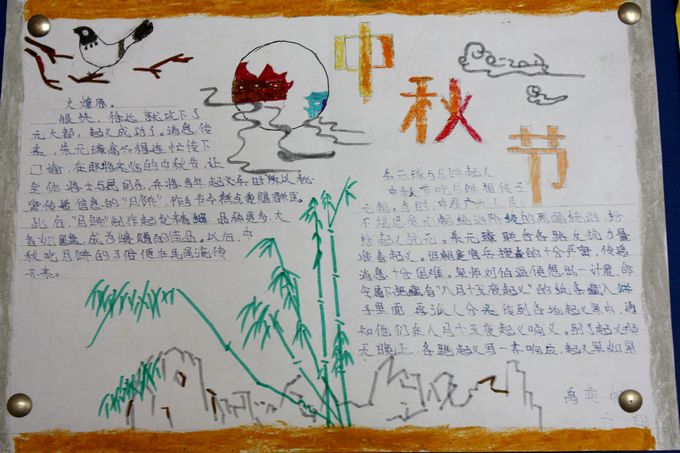 中秋节
朱元璋与月饼起义
中秋节吃月饼相传于
元朝。当时，中原广大人民
不堪忍受元朝统治阶级的残酷统治，纷
纷起义抗元。朱元璋联合各路反抗力量
准备起义。但朝庭官兵搜查的十分严密，传递
消息十分困难。军师刘伯温便想出一计策，命
令属下把藏有“八月十五夜起义”的纸条藏入饼
子里面，再派人分头传到各地起义军中，通
知他们在八月十五夜起义响义。到了起义那
天晚上，各路起义军一齐响应，起义军如星
火燎原。
很快，徐达就攻下了
元大都，起义成功了。消息传
来，朱元璋高兴得连忙传下
口谕，在即将来临的中秋节，让
全体将士与民同乐，并将当年起义兵时所以秘
密传递信息的“月饼”，作为节令糕点赏赐群臣。
此后，“月饼”制作起发精细，品种更多，大
者如圆盘，成为馈赠的佳品。以后，中
秋吃月饼的习俗便在民间流传
下来。